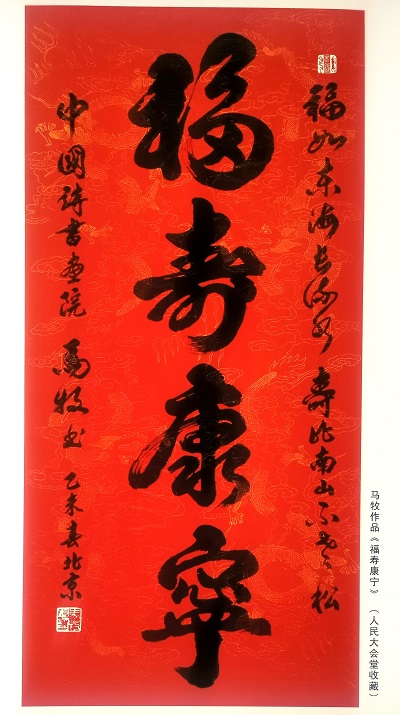 福如东海长流水 寿比南山不老松
福寿康宁
中國詩書畫院 馬牧书 乙未春北京
马牧作品《福寿康宁》（人民大会堂收藏）